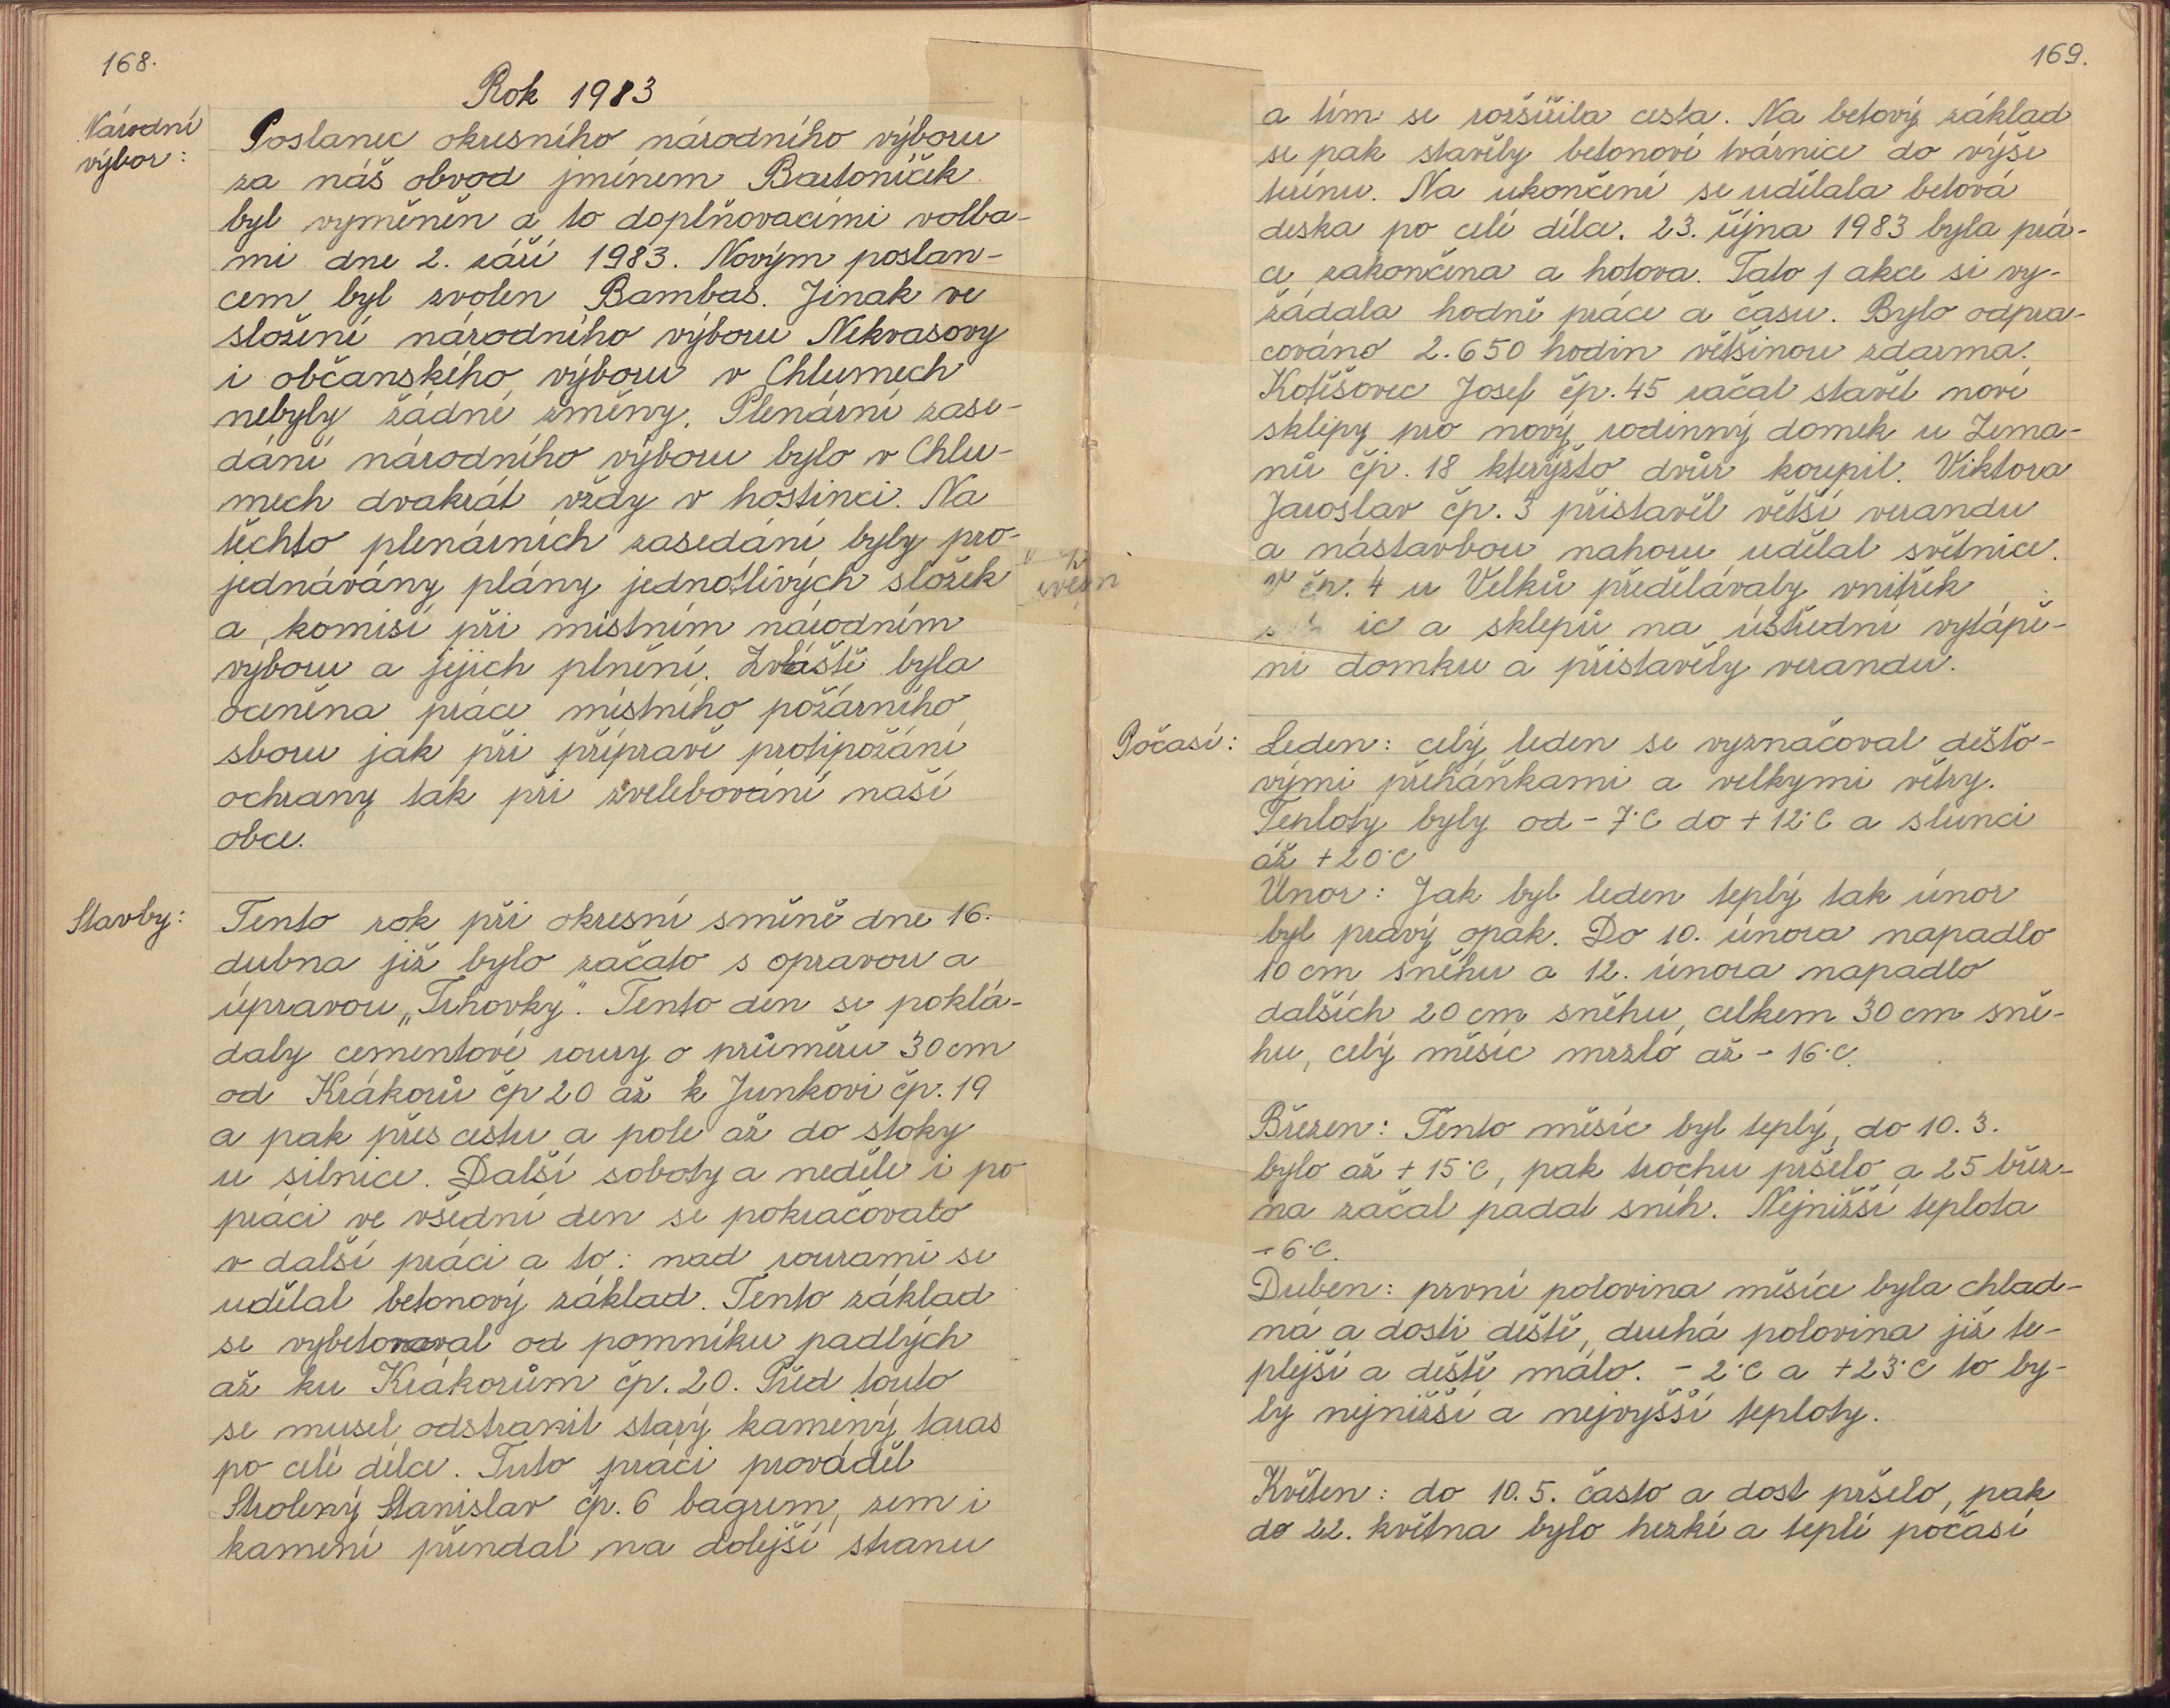 168.
Rok 1983
Národní
výbor:
Poslanec okresního národního výboru
za náš obvod jménem Bartoníček
byl vyměněn a to doplňovacími volba-
mi dne 2. září 1983. Novým poslan-
cem byl zvolen Bambas. Jinak ve
složení národního výboru Nekvasovy
i občanského výboru v Chlumech
nebyly žádné změny. Plenární zase-
dání národního výboru bylo v Chlu-
mech dvakrát vždy v hostinci. Na
těchto plenárních zasedání byly pro-
jednávány plány jednotlivých složek
a komisí při místním národním
výboru a jejich plnění. Zvláště byla
oceněna práce místního požárního
sboru jak při přípravě protipožání
ochrany tak při zvelebování naší
obce.
Stavby:
Tento rok při okresní směně dne 16.
dubna již bylo začato s opravou a
úpravou „Trhovky". Tento den se poklá-
daly cementové roury o průměru 30 cm
od Krákorů čp 20 až k Junkovi čp. 19
a pak přes cestu a pole až do stoky
u silnice. Další soboty a neděle i po
práci ve všední den se pokračovalo
v další práci a to: nad rourami se
udělal betonový základ. Tento základ
se vybetonoval od pomníku padlých
až ku Krákorům čp. 20. Před touto
se musel odstranit starý kamený taras
po celé délce. Tuto práci prováděl
Strolený Stanislav čp. 6 bagrem, zem i
kamení přendal na dolejší stranu
169.
a tím se rozšířila cesta. Na betový základ
se pak stavěly betonové tvárnice do výše
terénu. Na ukončení se udělala betová
deska po celé délce. 23. října 1983 byla prá-
ce zakončena a hotova. Tato akce si vy-
žádala hodně práce a času. Bylo odpra-
cováno 2.650 hodin většinou zdarma.
Kotěšovec Josef čp. 45 začal stavět nové
sklepy pro nový rodinný domek u Zema-
nů čp. 18 kterýžto dvůr koupil. Viktora
Jaroslav čp. 3 přistavěl větší verandu
a nástavbou nahoru udělal světnice.
V čp. 4 u Velků předělávaly vnitřek
a sklepů na ústřední vytápě-
ní domku a přistavěly verandu.
Počasí:
Leden: celý leden se vyznačoval dešťo-
vými přeháňkami a velkymi větry.
Teploty byly od -7°C do +12°C a slunci
až +20°C
Únor: Jak byl leden teplý tak únor
byl pravý opak. Do 10. února napadlo
10 cm sněhu a 12. února napadlo
dalších 20 cm sněhu, celkem 30 cm sně-
hu, celý měsíc mrzlo až -16°C.
Březen: Tento měsíc byl teplý, do 10. 3.
bylo až +15°C, pak trochu pršelo a 25 břez-
na začal padat sníh. Nejnižší teplota
-6°C.
Duben: první polovina měsíce byla chlad-
ná a dosti deště, druhá polovina již te-
plejší a deště málo. -2°C a +23°C to by-
ly nejnižší a nejvyšší teploty.
Květen: do 10. 5. často a dost pršelo, pak
do 22. května bylo hezké a teplé počasí